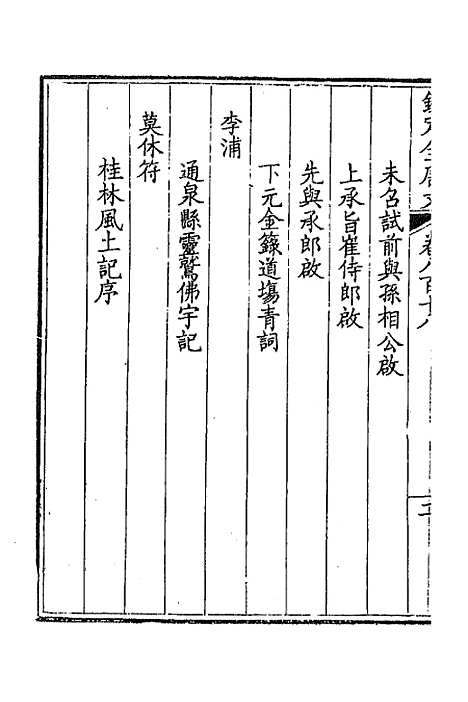 欽定全唐文 卷八百十八 二
未召試前與孫相公啟
上承旨崔侍郎啟
先與承郎啟
下元金籙道塲青詞
李浦
通泉縣靈鷲佛宇記
莫休符
桂林風土記序